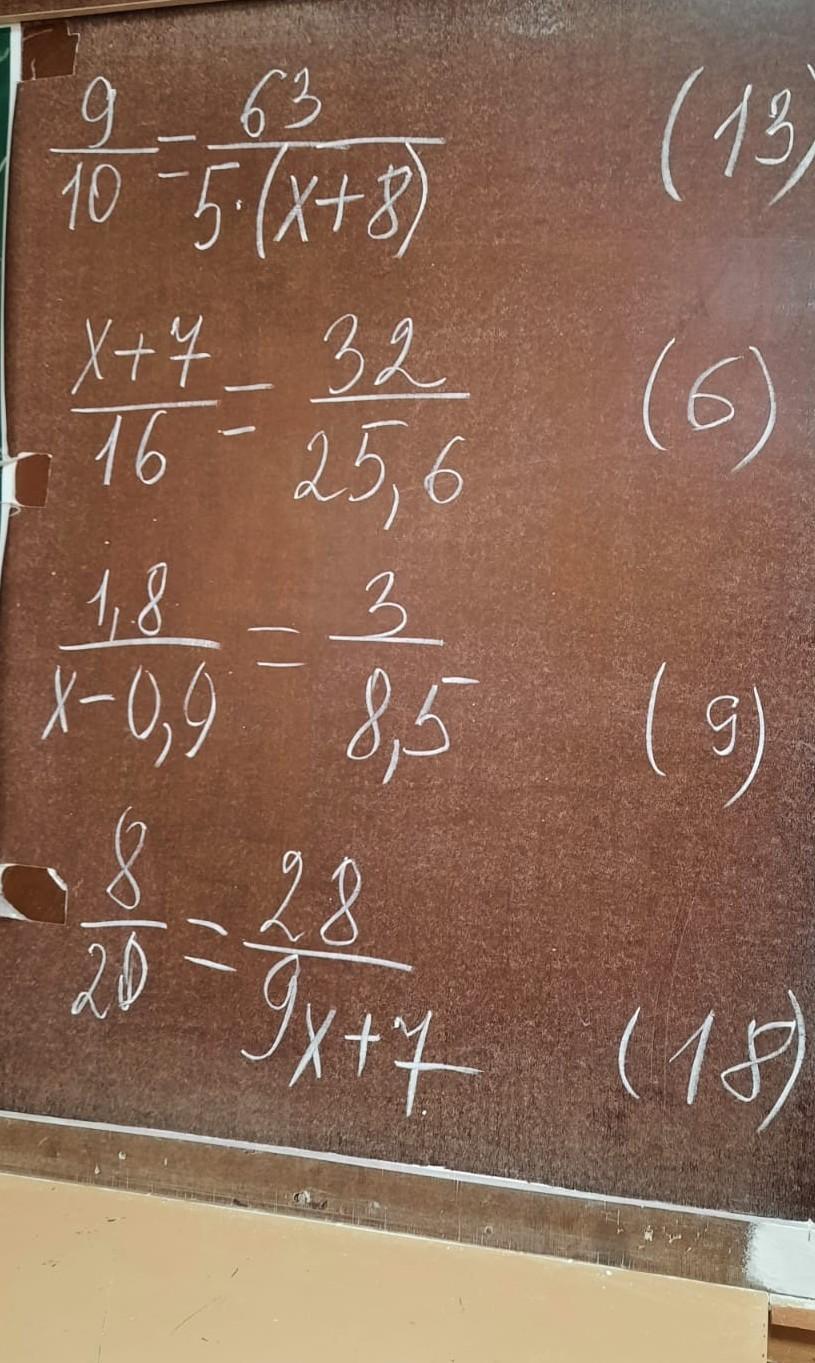 9/10 = 63/(5·(x+8)) (13)
(x+7)/16 = 32/25,6 (6)
1,8/(x-0,9) = 3/8,5 (9)
8/20 = 28/(9x+7) (18)